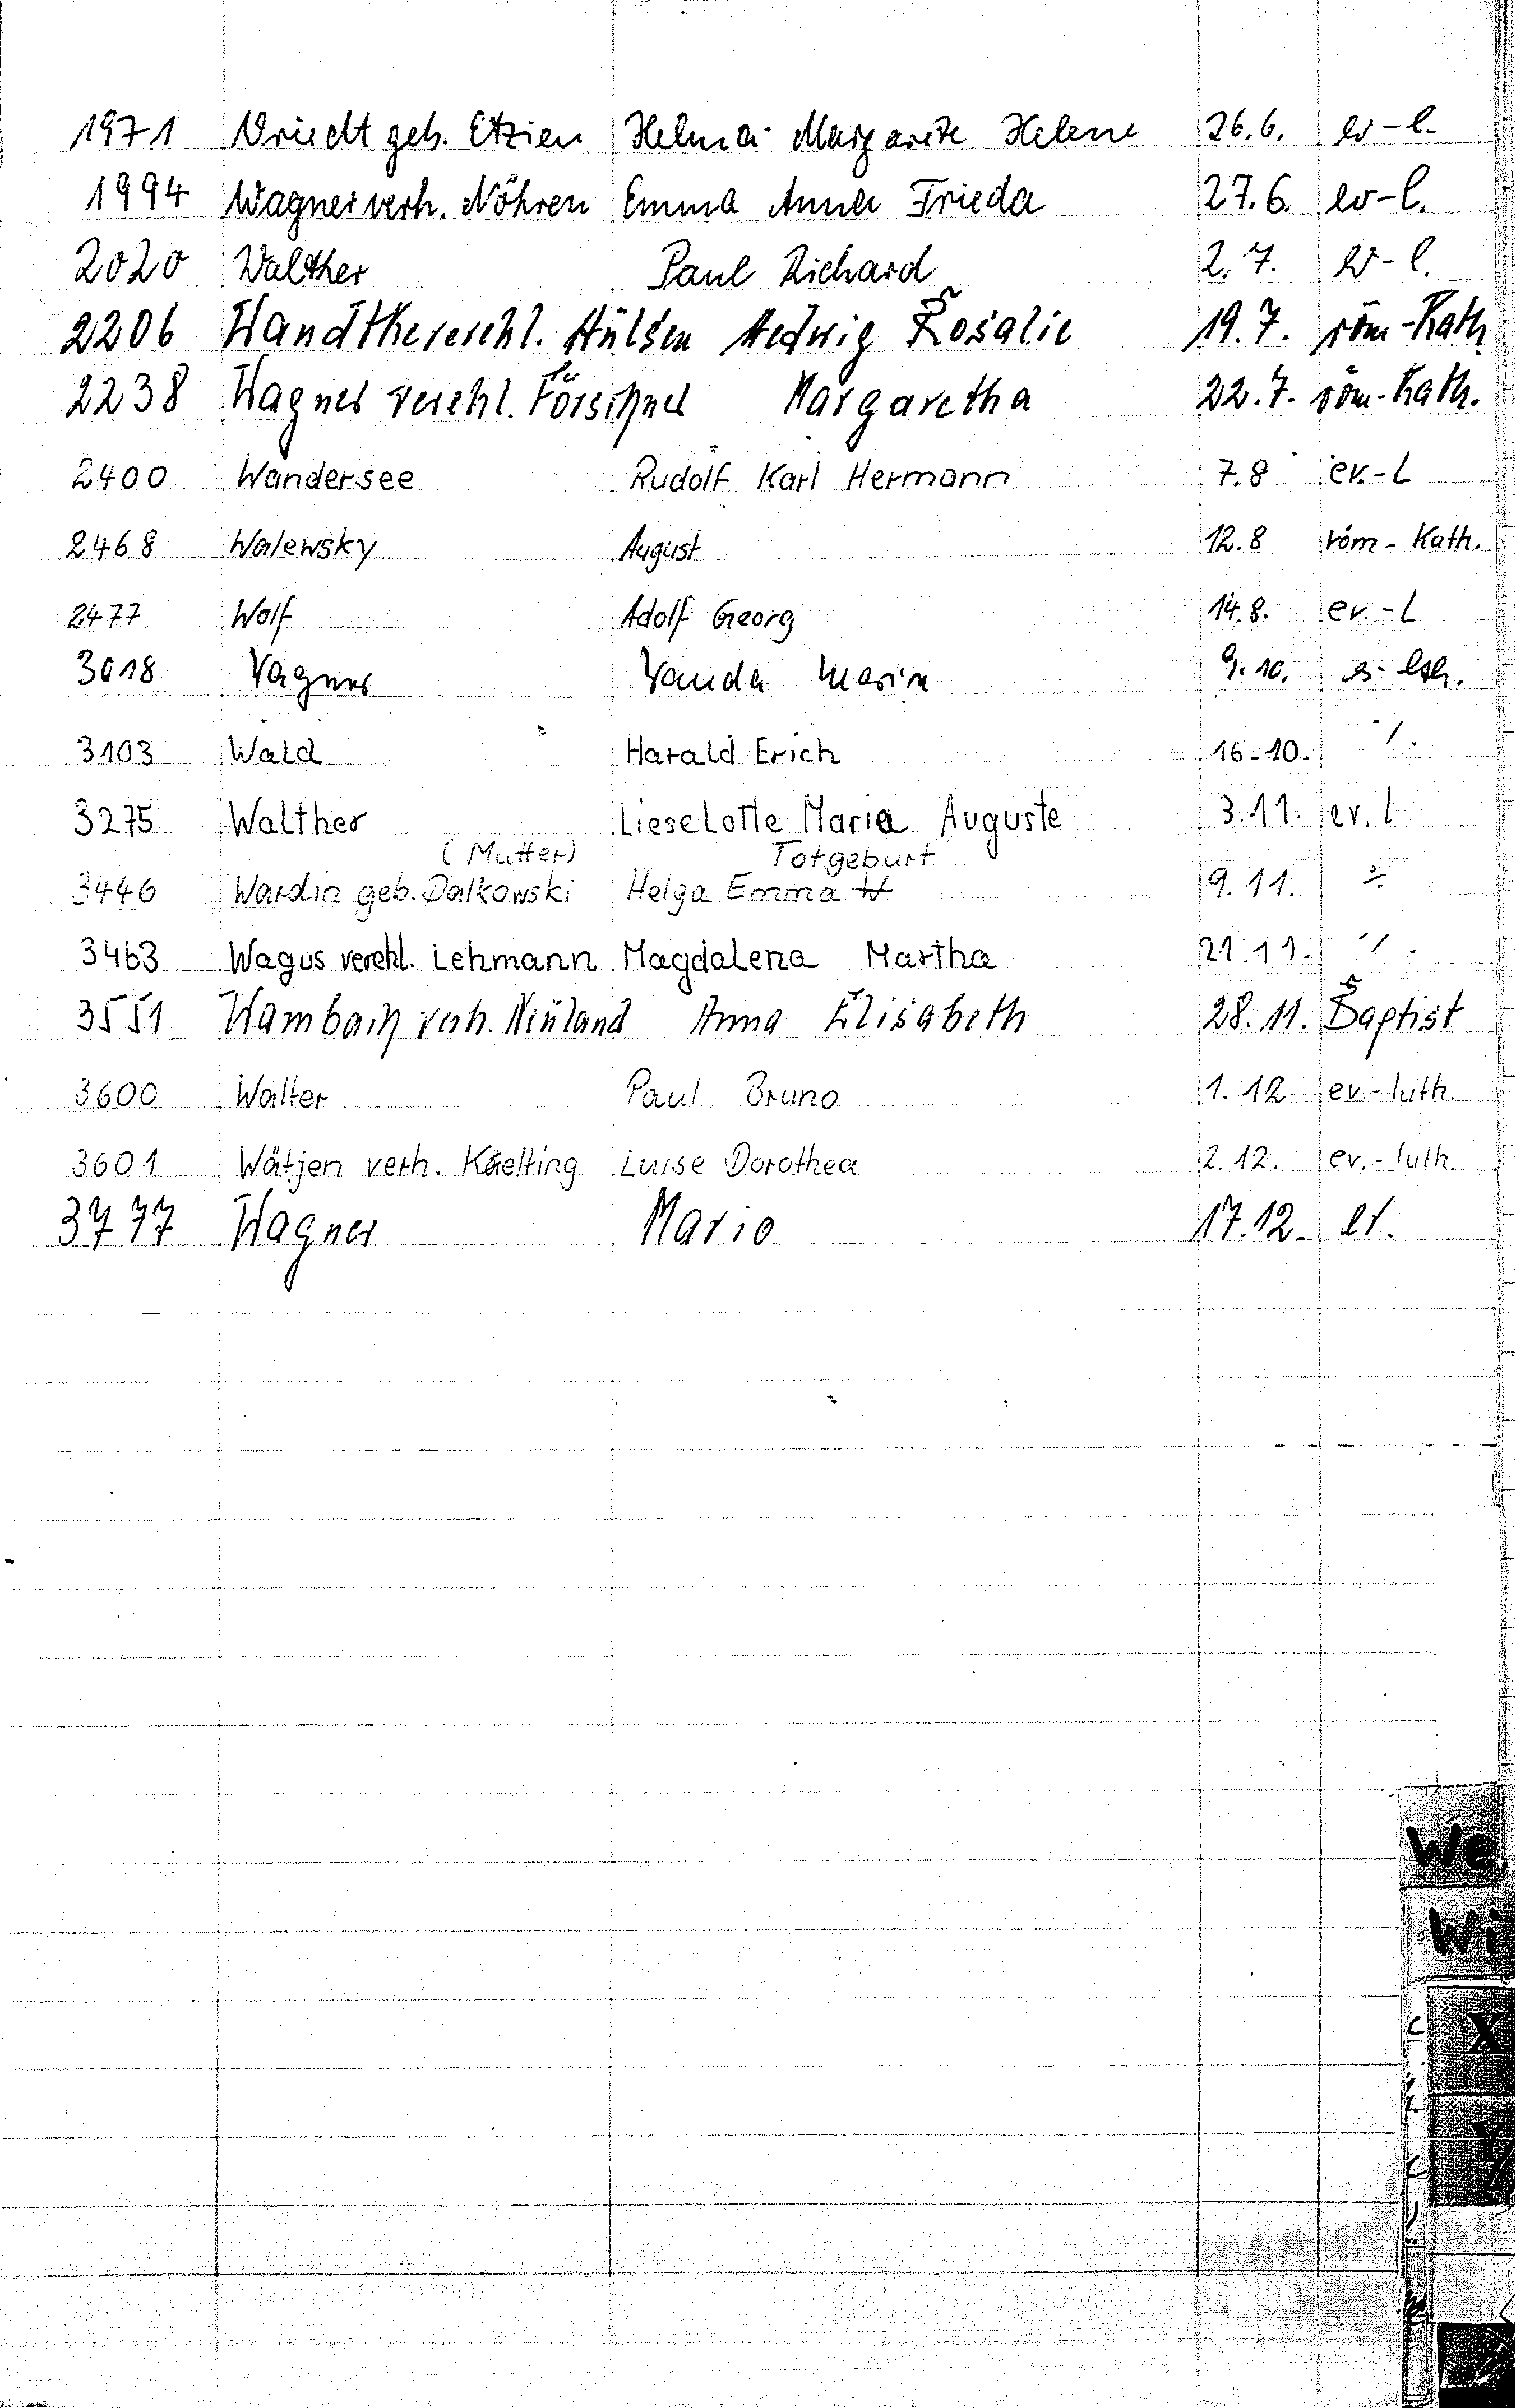 1971 Vriedt geb. Etzien Helma Margarete Helene 26.6. ev-l.
1994 Wagner verh. Nöhren Emma Anna Frieda 27.6. ev-l.
2020 Walther Paul Richard 2.7. ev-l.
2206 Wandtke verehl. Hülsen Hedwig Rosalie 19.7. röm-Kath
2238 Wagner verehl. Förschner Margaretha 22.7. röm-Kath.
2400 Wandersee Rudolf Karl Hermann 7.8 ev.-L
2468 Walewsky August 12.8 röm-Kath.
2477 Wolf Adolf Georg 14.8. ev.-L
3018 Wagner Wanda Maria 9.10.
3103 Wald Harald Erich 16.10. ·/.
3275 Walther Lieselotte Maria Auguste 3.11. ev.l
(Mutter) Totgeburt
3446 Wardin geb. Dalkowski Helga Emma 9.11. ·/.
3463 Wagus verehl. Lehmann Magdalena Martha 21.11. ·/.
3551 Wambach verh. Neuland Anna Elisabeth 28.11. Baptist
3600 Walter Paul Bruno 1.12 ev.-luth.
3601 Wätjen verh. Kaelting Luise Dorothea 2.12. ev.-luth.
3777 Wagner Mario 17.12. ev.
We
Wi
X
Y